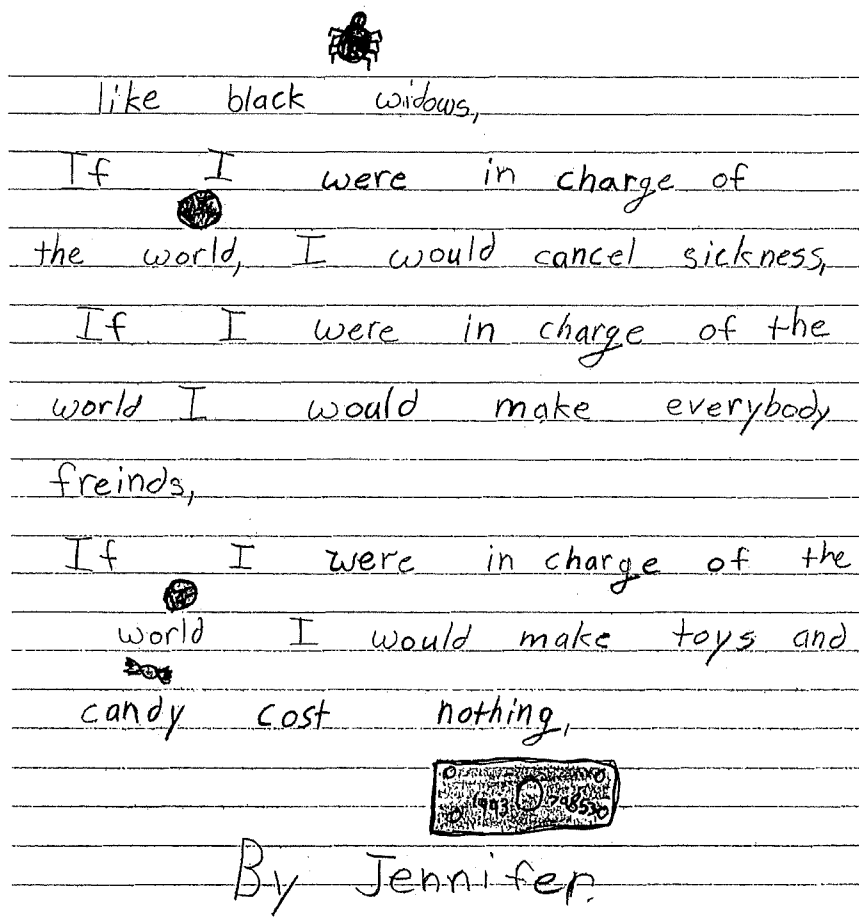 like black widows,
If I were in charge of
the world, I would cancel sickness,
If I were in charge of the
world I would make everybody
freinds,
If I were in charge of the
world I would make toys and
candy cost nothing,
1993
By Jennifer.